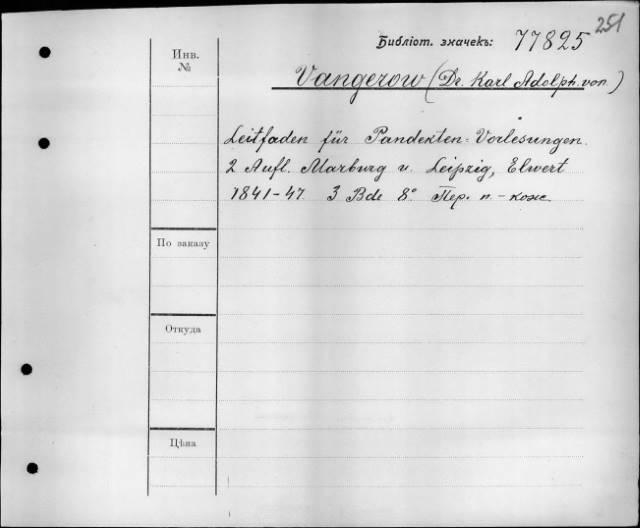 251
Библіот. значекъ: 77825
Инв.
№
Vangerow (Dr. Karl Adolph. von.)
Leitfaden für Pandekten-Vorlesungen.
2 Aufl. Marburg u. Leipzig, Elwert
1841-47. 3 Bde 8° Пер. п.-коже.
По заказу
Откуда
Цѣна